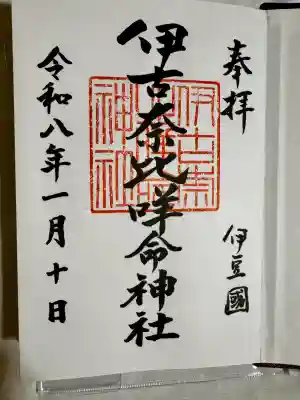 奉拝
伊豆國
伊古奈比咩命神社
令和八年一月十日